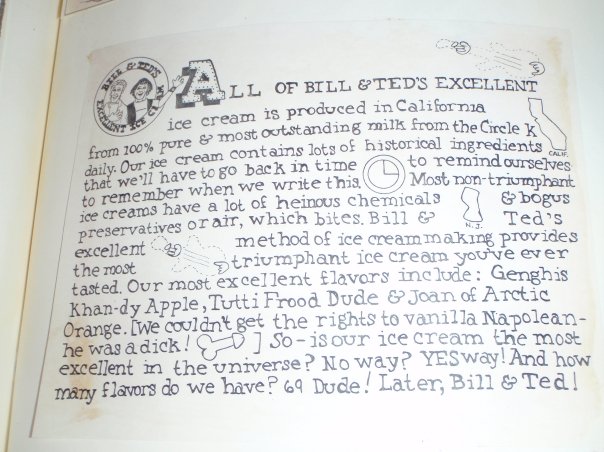 BILL & TED'S
EXCELLENT ICE CREAM
ALL OF BILL & TED'S EXCELLENT
ice cream is produced in California
from 100% pure & most outstanding milk from the Circle K
CALIF.
daily. Our ice cream contains lots of historical ingredients
that we'll have to go back in time to remind ourselves
to remember when we write this. Most non-triumphant
ice creams have a lot of heinous chemicals & bogus
N.J.
preservatives or air, which bites. Bill & Ted's
excellent method of ice cream making provides
the most triumphant ice cream you've ever
tasted. Our most excellent flavors include: Genghis
Khan-dy Apple, Tutti Frood Dude & Joan of Arctic
Orange. [We couldn't get the rights to vanilla Napolean-
he was a dick! ] So-is our ice cream the most
excellent in the universe? No way? YES way! And how
many flavors do we have? 69 Dude! Later, Bill & Ted!